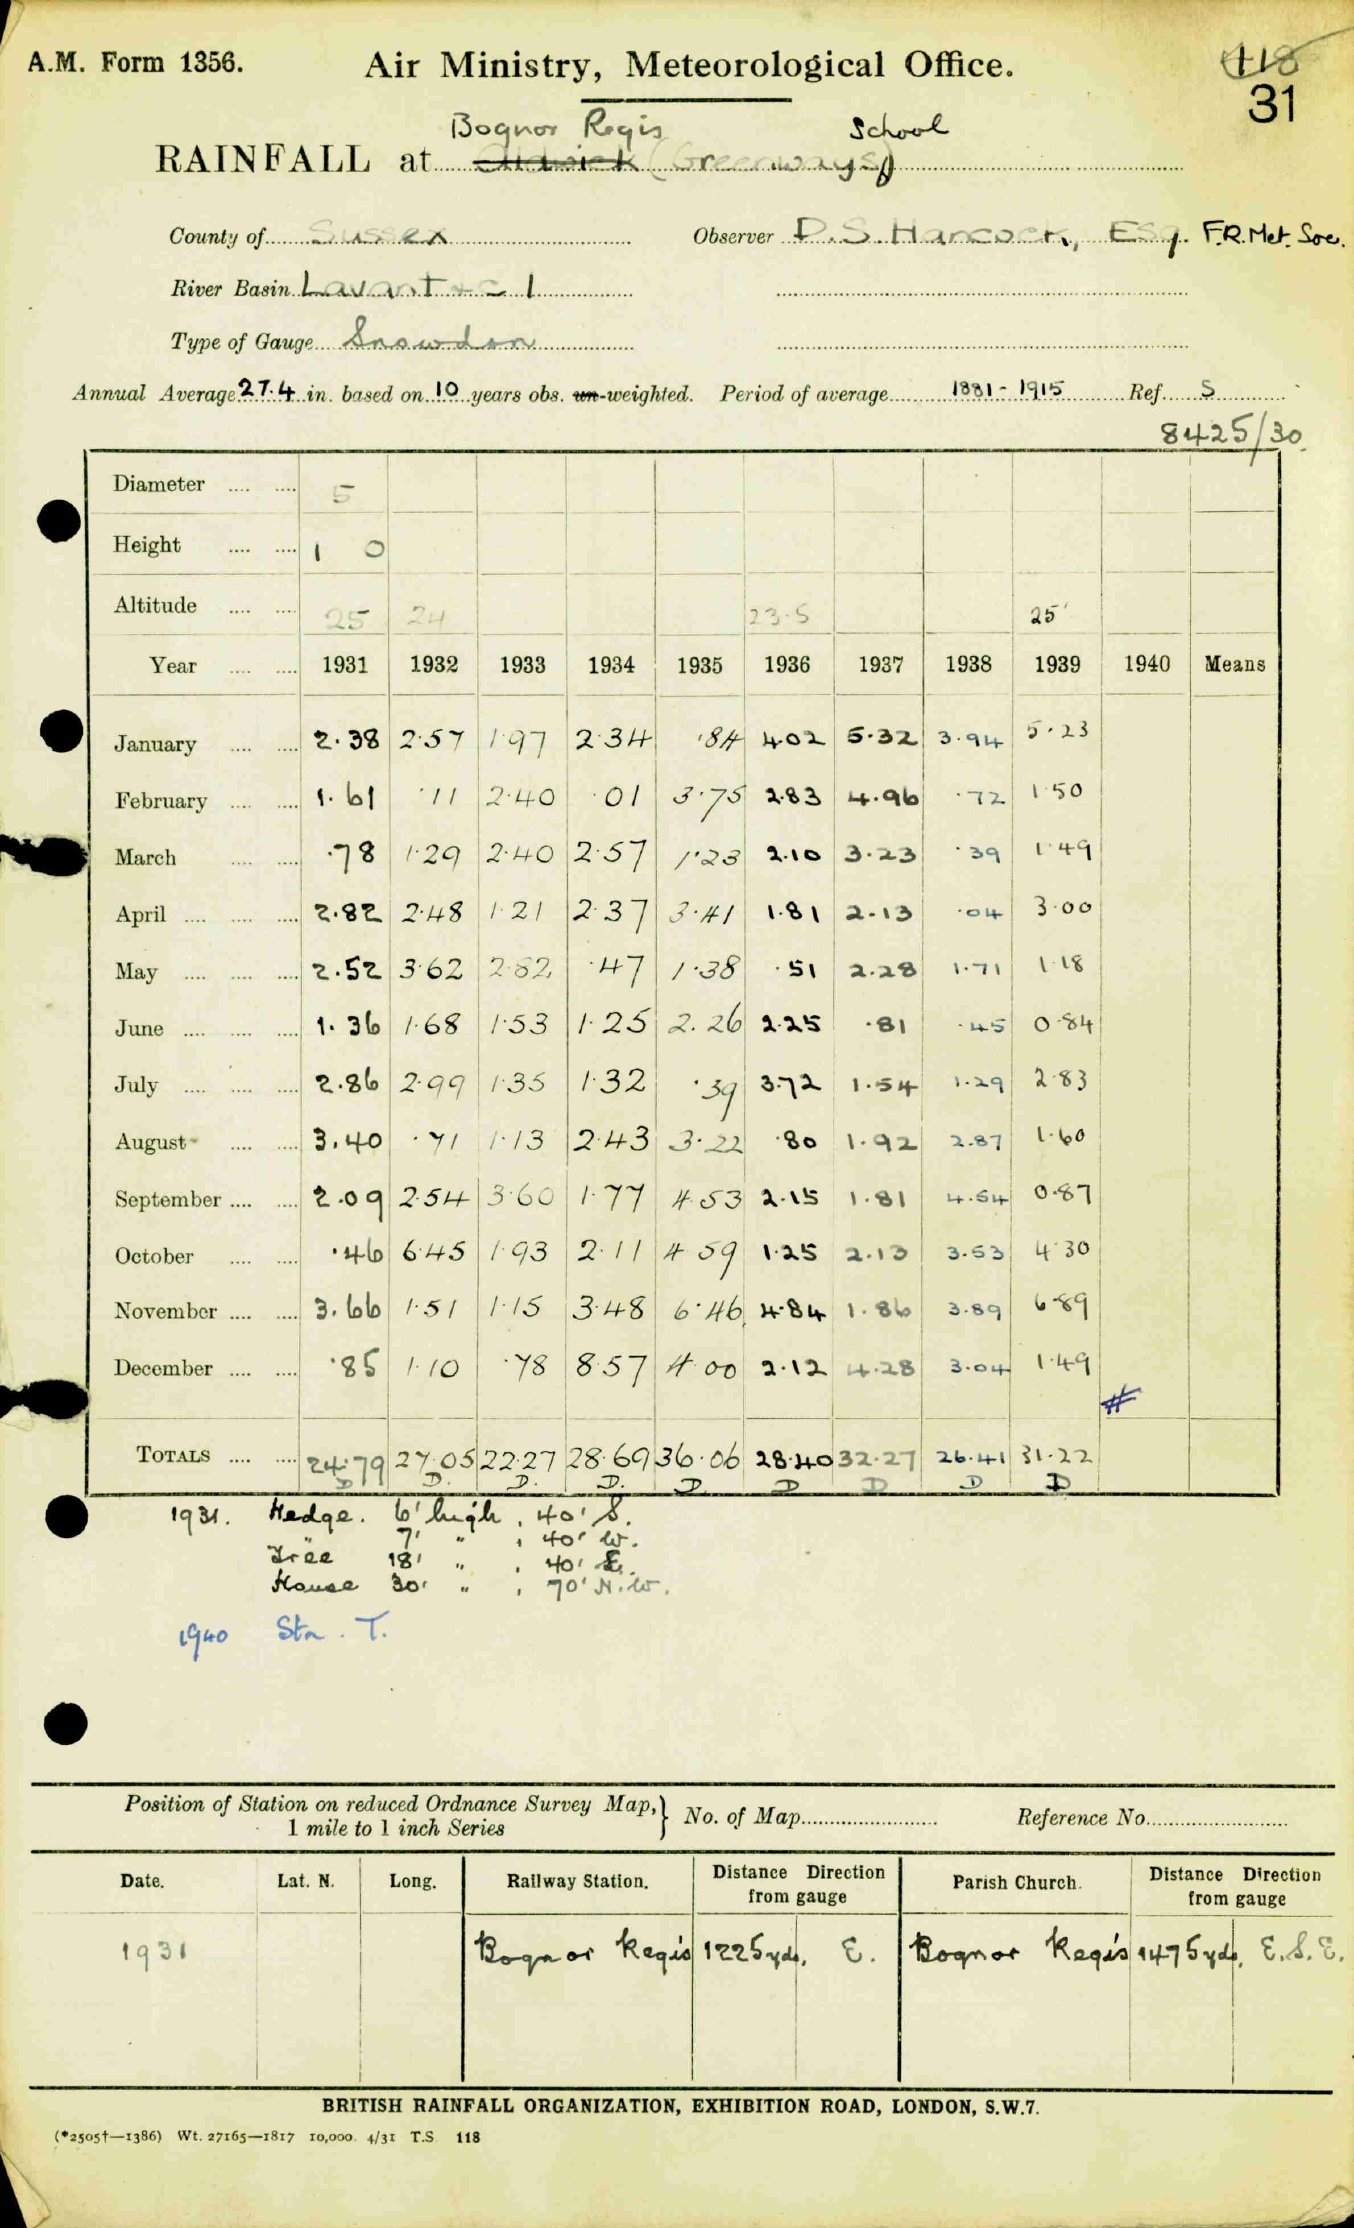 A.M. Form 1356.
Air Ministry, Meteorological Office.
118
31
Bognor Regis School
RAINFALL at Aldwick (Greenways)
County of Sussex Observer D.S. Hancock, Esq. F.R.Met. Soc.
River Basin Lavant &c 1
Type of Gauge Snowdon
Annual Average 27.4 in. based on 10 years obs. un-weighted. Period of average 1881-1915 Ref. S
8425/30
Diameter 5
Height 1 0
Altitude 25 24 23.5 25'
Year 1931 1932 1933 1934 1935 1936 1937 1938 1939 1940 Means
January 2.38 2.57 1.97 2.34 .84 4.02 5.32 3.94 5.23
February 1.61 .11 2.40 .01 3.75 2.83 4.96 .72 1.50
March .78 1.29 2.40 2.57 1.23 2.10 3.23 .39 1.49
April 2.82 2.48 1.21 2.37 3.41 1.81 2.13 .04 3.00
May 2.52 3.62 2.82 .47 1.38 .51 2.28 1.71 1.18
June 1.36 1.68 1.53 1.25 2.26 2.25 .81 .45 0.84
July 2.86 2.99 1.35 1.32 .39 3.72 1.54 1.29 2.83
August 3.40 .71 1.13 2.43 3.22 .80 1.92 2.87 1.60
September 2.09 2.54 3.60 1.77 4.53 2.15 1.81 4.54 0.87
October .46 6.45 1.93 2.11 4.59 1.25 2.13 3.53 4.30
November 3.66 1.51 1.15 3.48 6.46 4.84 1.86 3.89 6.89
December .85 1.10 .78 8.57 4.00 2.12 4.28 3.04 1.49
#
TOTALS 24.79 27.05 22.27 28.69 36.06 28.40 32.27 26.41 31.22
D D. D. D. D. D D D D
1931. Hedge. 6' high, 40' S.
7' " , 40' W.
Tree 18' " , 40' E.
House 30' " , 70' N.W.
1940 Stn. T.
Position of Station on reduced Ordnance Survey Map, 1 mile to 1 inch Series } No. of Map Reference No.
Date. Lat. N. Long. Railway Station. Distance Direction from gauge Parish Church. Distance Direction from gauge
1931 Bognor Regis 1225 yds. E. Bognor Regis 1475 yds. E.S.E.
BRITISH RAINFALL ORGANIZATION, EXHIBITION ROAD, LONDON, S.W.7.
(*2505†—1386) Wt. 27165—1817 10,000 4/31 T.S 118